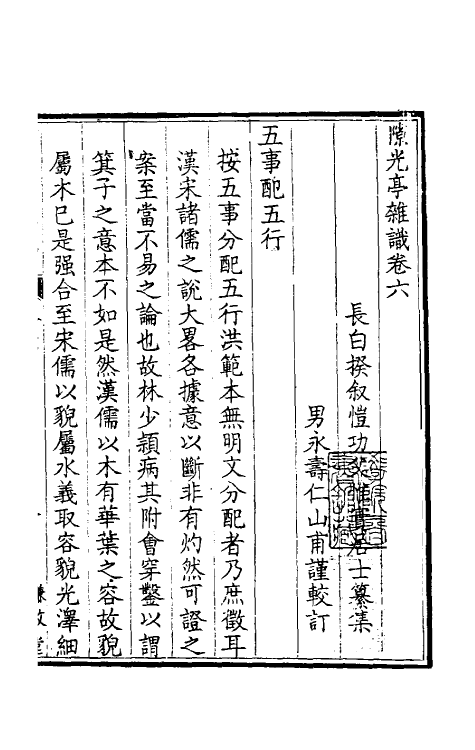 隙光亭雜識卷六
長白揆敘愷功父惟實居士纂集
男永壽仁山甫謹較訂
五事配五行
按五事分配五行洪範本無明文分配者乃庶徵耳
漢宋諸儒之說大畧各據意以斷非有灼然可證之
案至當不易之論也故林少穎病其附會穿鑿以謂
箕子之意本不如是然漢儒以木有華葉之容故貌
屬木已是强合至宋儒以貌屬水義取容貌光澤細
謙牧堂